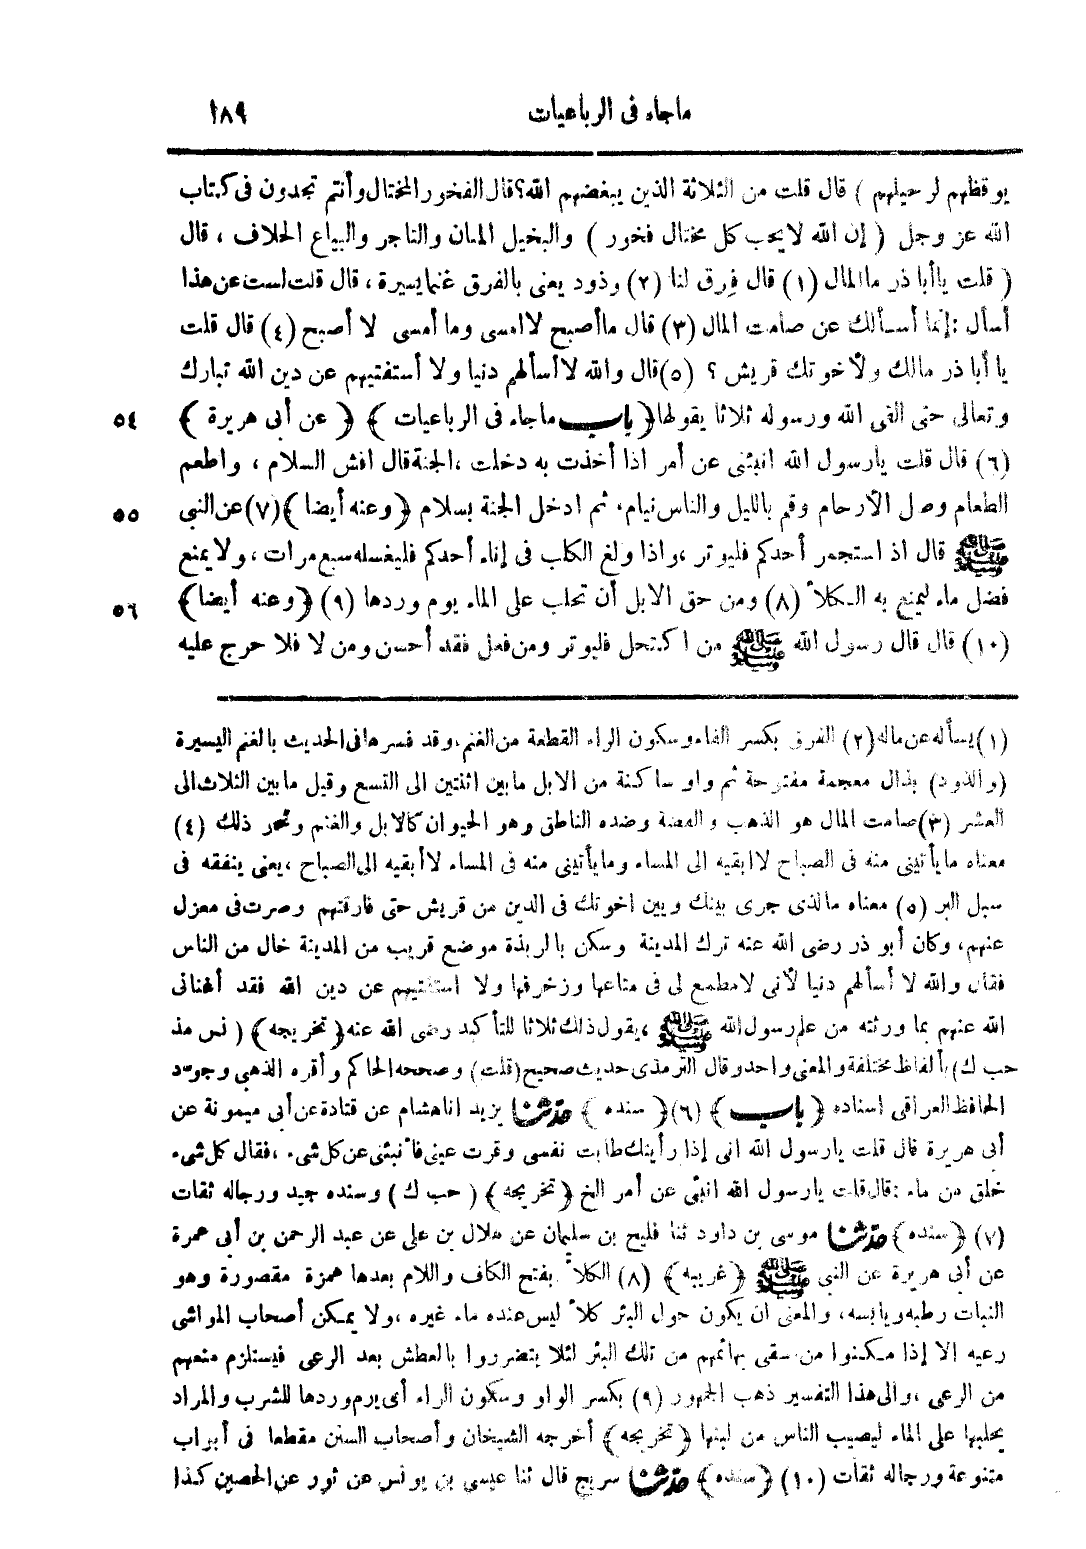 ماجاء فى الرباعيات ١٨٩
يوقظهم لرحيلهم ) قال قلت من الثلاثة الذين يبغضهم الله؟ قال الفخور المختال وأنتم تجدون فى كتاب
الله عز وجل ( إن الله لا يحب كل مختال فخور ) والبخيل المنان والتاجر والبياع الحلاف ، قال
( قلت ياأبا ذر ما المال (١) قال فِرق لنا (٢) وذود يعنى بالفرق غنما يسيرة ، قال قلت لست عن هذا
أسأل : إنما أسألك عن صامت المال (٣) قال ماأصبح لا امسى وما أمسى لا أصبح (٤) قال قلت
يا أبا ذر مالك ولأخوتك قريش ؟ (٥) قال والله لا أسألهم دنيا ولا أستفتيهم عن دين الله تبارك
وتعالى حتى ألقى الله ورسوله ثلاثا يقولها ﴿ باب ماجاء فى الرباعيات ﴾ ﴿ عن أبى هريرة ﴾ ٥٤
(٦) قال قلت يارسول الله انبئنى عن أمر اذا أخذت به دخلت ، الجنة قال افش السلام ، واطعم
الطعام وصل الأرحام وقم بالليل والناس نيام، ثم ادخل الجنة بسلام ﴿ وعنه أيضا ﴾ (٧) عن النبى ٥٥
ﷺ قال اذ استجمر أحدكم فليوتر ، واذا ولغ الكلب فى إناء أحدكم فليغسله سبع مرات ، ولا يمنع
فضل ماء ليمنع به الكلأ (٨) ومن حق الابل أن تحلب على الماء يوم وردها (٩) ﴿ وعنه أيضا ﴾ ٥٦
(١٠) قال قال رسول الله ﷺ من اكتحل فليوتر ومن فعل فقد أحسن ومن لا فلا حرج عليه
(١) يسأله عن ماله (٢) الفرق بكسر الفاء وسكون الراء القطعة من الغنم ، وقد فسرها فى الحديث بالغنم اليسيرة
(والذود) بذال معجمة مفتوحة ثم واو ساكنة من الابل مابين اثنتين الى التسع وقيل مابين الثلاث الى
العشر (٣) صامت المال هو الذهب والفضة وضده الناطق وهو الحيوان كالابل والغنم ونحو ذلك (٤)
معناه ما يأتينى منه فى الصباح لا ابقيه الى المساء وما يأتينى منه فى المساء لا أبقيه الى الصباح ، يعنى ينفقه فى
سبل البر (٥) معناه مالذى جرى بينك وبين اخوتك فى الدين من قريش حتى فارقتهم وصرت فى معزل
عنهم، وكان أبو ذر رضى الله عنه ترك المدينة وسكن بالربذة موضع قريب من المدينة خال من الناس
فقال والله لا أسألهم دنيا لأنى لا مطمع لى فى متاعها وزخرفها ولا استفتيهم عن دين الله فقد أغنانى
الله عنهم بما ورثته من علم رسول الله ﷺ ، يقول ذلك ثلاثا للتأكيد رضى الله عنه ﴿ تخريجه ﴾ ( نس مذ
حب ك) بألفاظ مختلفة والمعنى واحد وقال الترمذى حديث صحيح (قلت) وصححه الحاكم وأقره الذهبى وجود
الحافظ العراقى اسناده ﴿ باب ﴾ (٦) ﴿ سنده ﴾ حدثنا يزيد انا هشام عن قتادة عن أبى ميمونة عن
أبى هريرة قال قلت يارسول الله انى إذا رأيتك طابت نفسى وقرت عينى فأنبئنى عن كل شىء ، فقال كل شىء
خلق من ماء : قال قلت يارسول الله انبئى عن أمر الخ ﴿ تخريجه ﴾ ( حب ك ) وسنده جيد ورجاله ثقات
(٧) ﴿ سنده ﴾ حدثنا موسى بن داود ثنا فليح بن سليمان عن هلال بن على عن عبد الرحمن بن أبى عمرة
عن أبى هريرة عن النبى ﷺ ﴿ غريبه ﴾ (٨) الكلأ بفتح الكاف واللام بعدها همزة مقصورة وهو
النبات رطبه ويابسه، والمعنى ان يكون حول البئر كلأ ليس عنده ماء غيره ، ولا يمكن أصحاب المواشى
رعيه الا إذا مكنوا من سقى بهائمهم من تلك البئر لئلا يتضرروا بالعطش بعد الرعى فيستلزم منعهم
من الرعى ، والى هذا التفسير ذهب الجمهور (٩) بكسر الواو وسكون الراء أى يوم وردها للشرب والمراد
يحلبها على الماء ليصيب الناس من لبنها ﴿ تخريجه ﴾ أخرجه الشيخان وأصحاب السنن مقطعا فى أبواب
متنوعة ورجاله ثقات (١٠) ﴿ سنده ﴾ حدثنا سريج قال ثنا عيسى بن يونس عن ثور عن الحصين كذا